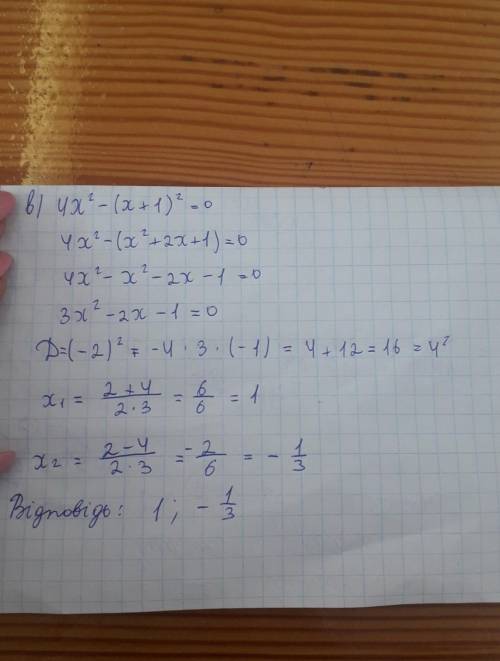 в) 4x² - (x + 1)² = 0
4x² - (x² + 2x + 1) = 0
4x² - x² - 2x - 1 = 0
3x² - 2x - 1 = 0
Д = (-2)² = -4 · 3 · (-1) = 4 + 12 = 16 = 4²
x₁ = (2 + 4)/(2 · 3) = 6/6 = 1
x₂ = (2 - 4)/(2 · 3) = -2/6 = - 1/3
Відповідь: 1 ; - 1/3